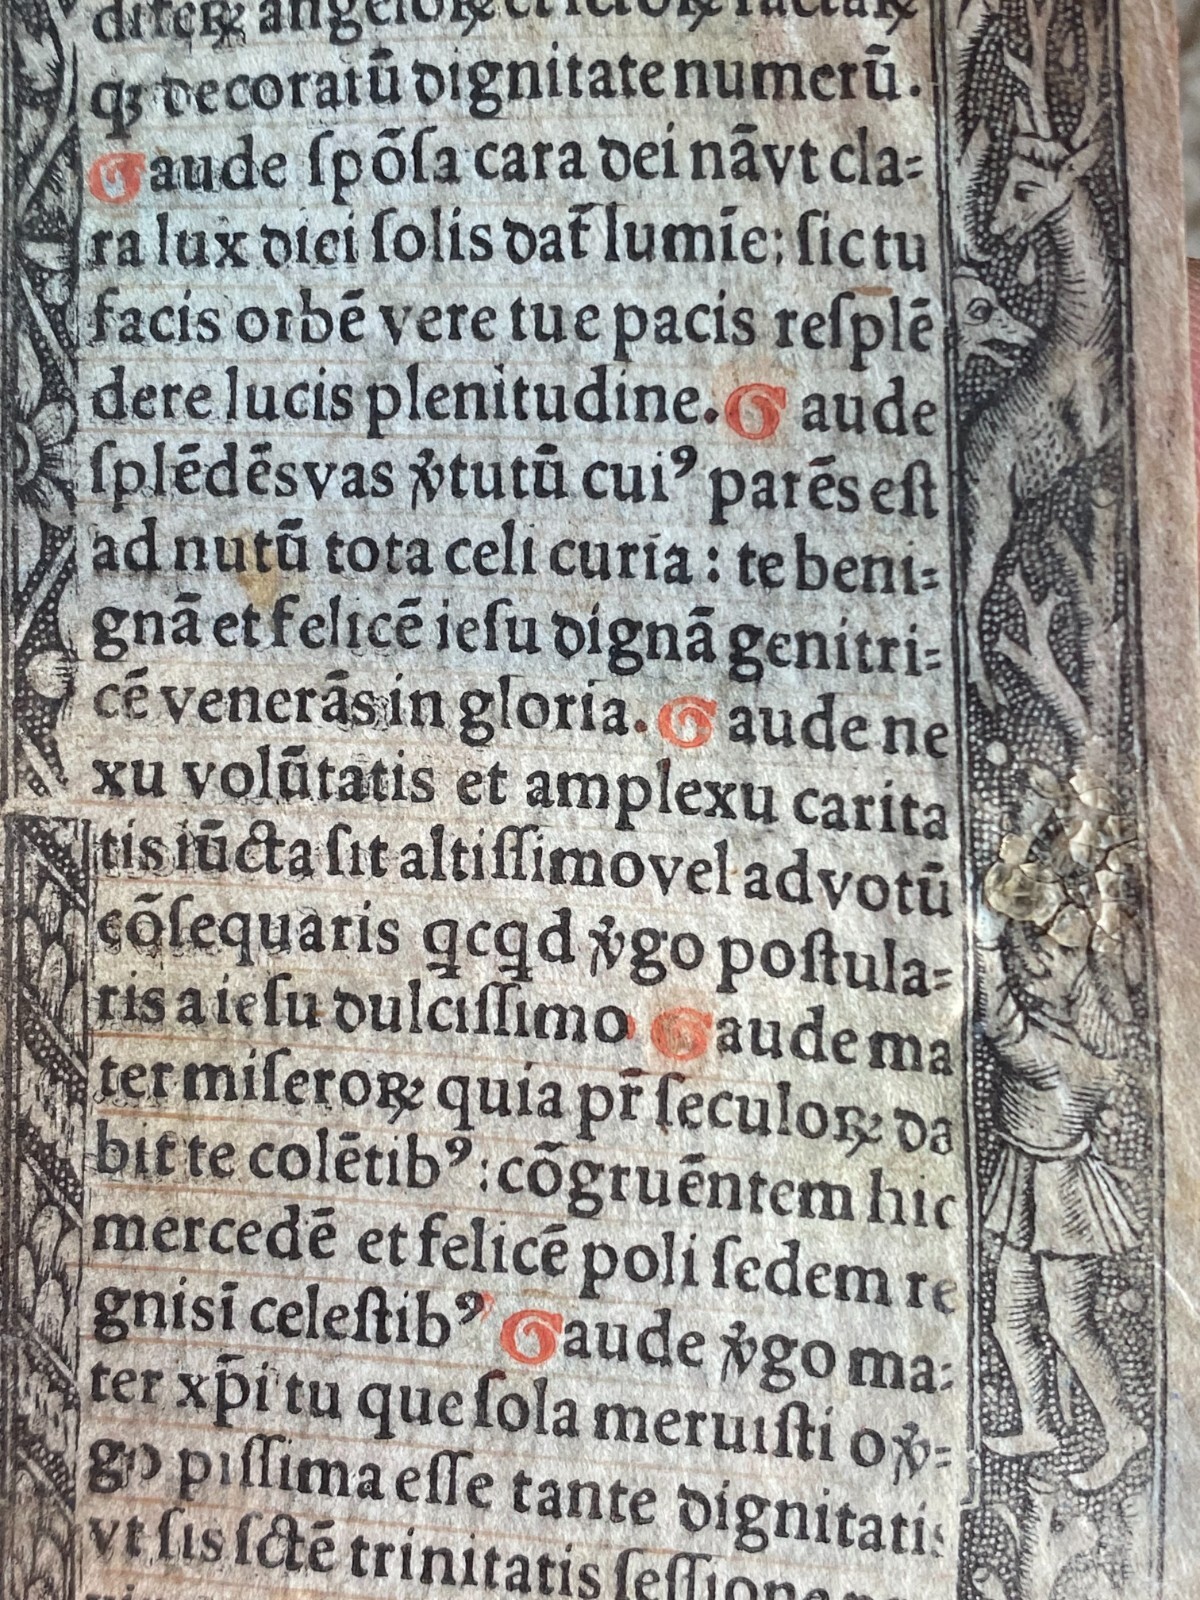 q̃ꝫ decoratū dignitate numerū.
Gaude ſpōſa cara dei nāvt cla=
ra lux diei ſolis dat̄ lumīe; ſic tu
facis orbē vere tue pacis reſplē
dere lucis plenitudine. Gaude
ſplēdēs vas v̾tutū cuiꝰ parēs eſt
ad nutū tota celi curia : te beni=
gnā et felicē ieſu dignā genitri=
cē venerās in gloria. Gaude ne
xu volūtatis et amplexu carita
tis iūcta ſit altiſſimo vel ad votū
cōſequaris ꝗcꝗd v̾go poſtula=
ris a ieſu dulciſſimo Gaude ma
ter miſeroꝝ quia pr̄ ſeculoꝝ da
bit te colētibꝰ : cōgruēntem hic
mercedē et felicē poli ſedem re
gnis ī celeſtibꝰ Gaude v̾go ma=
ter xp̄i tu que ſola meruiſti o v̾=
go piſſima eſſe tante dignitatis
vt ſis ſctē trinitatis